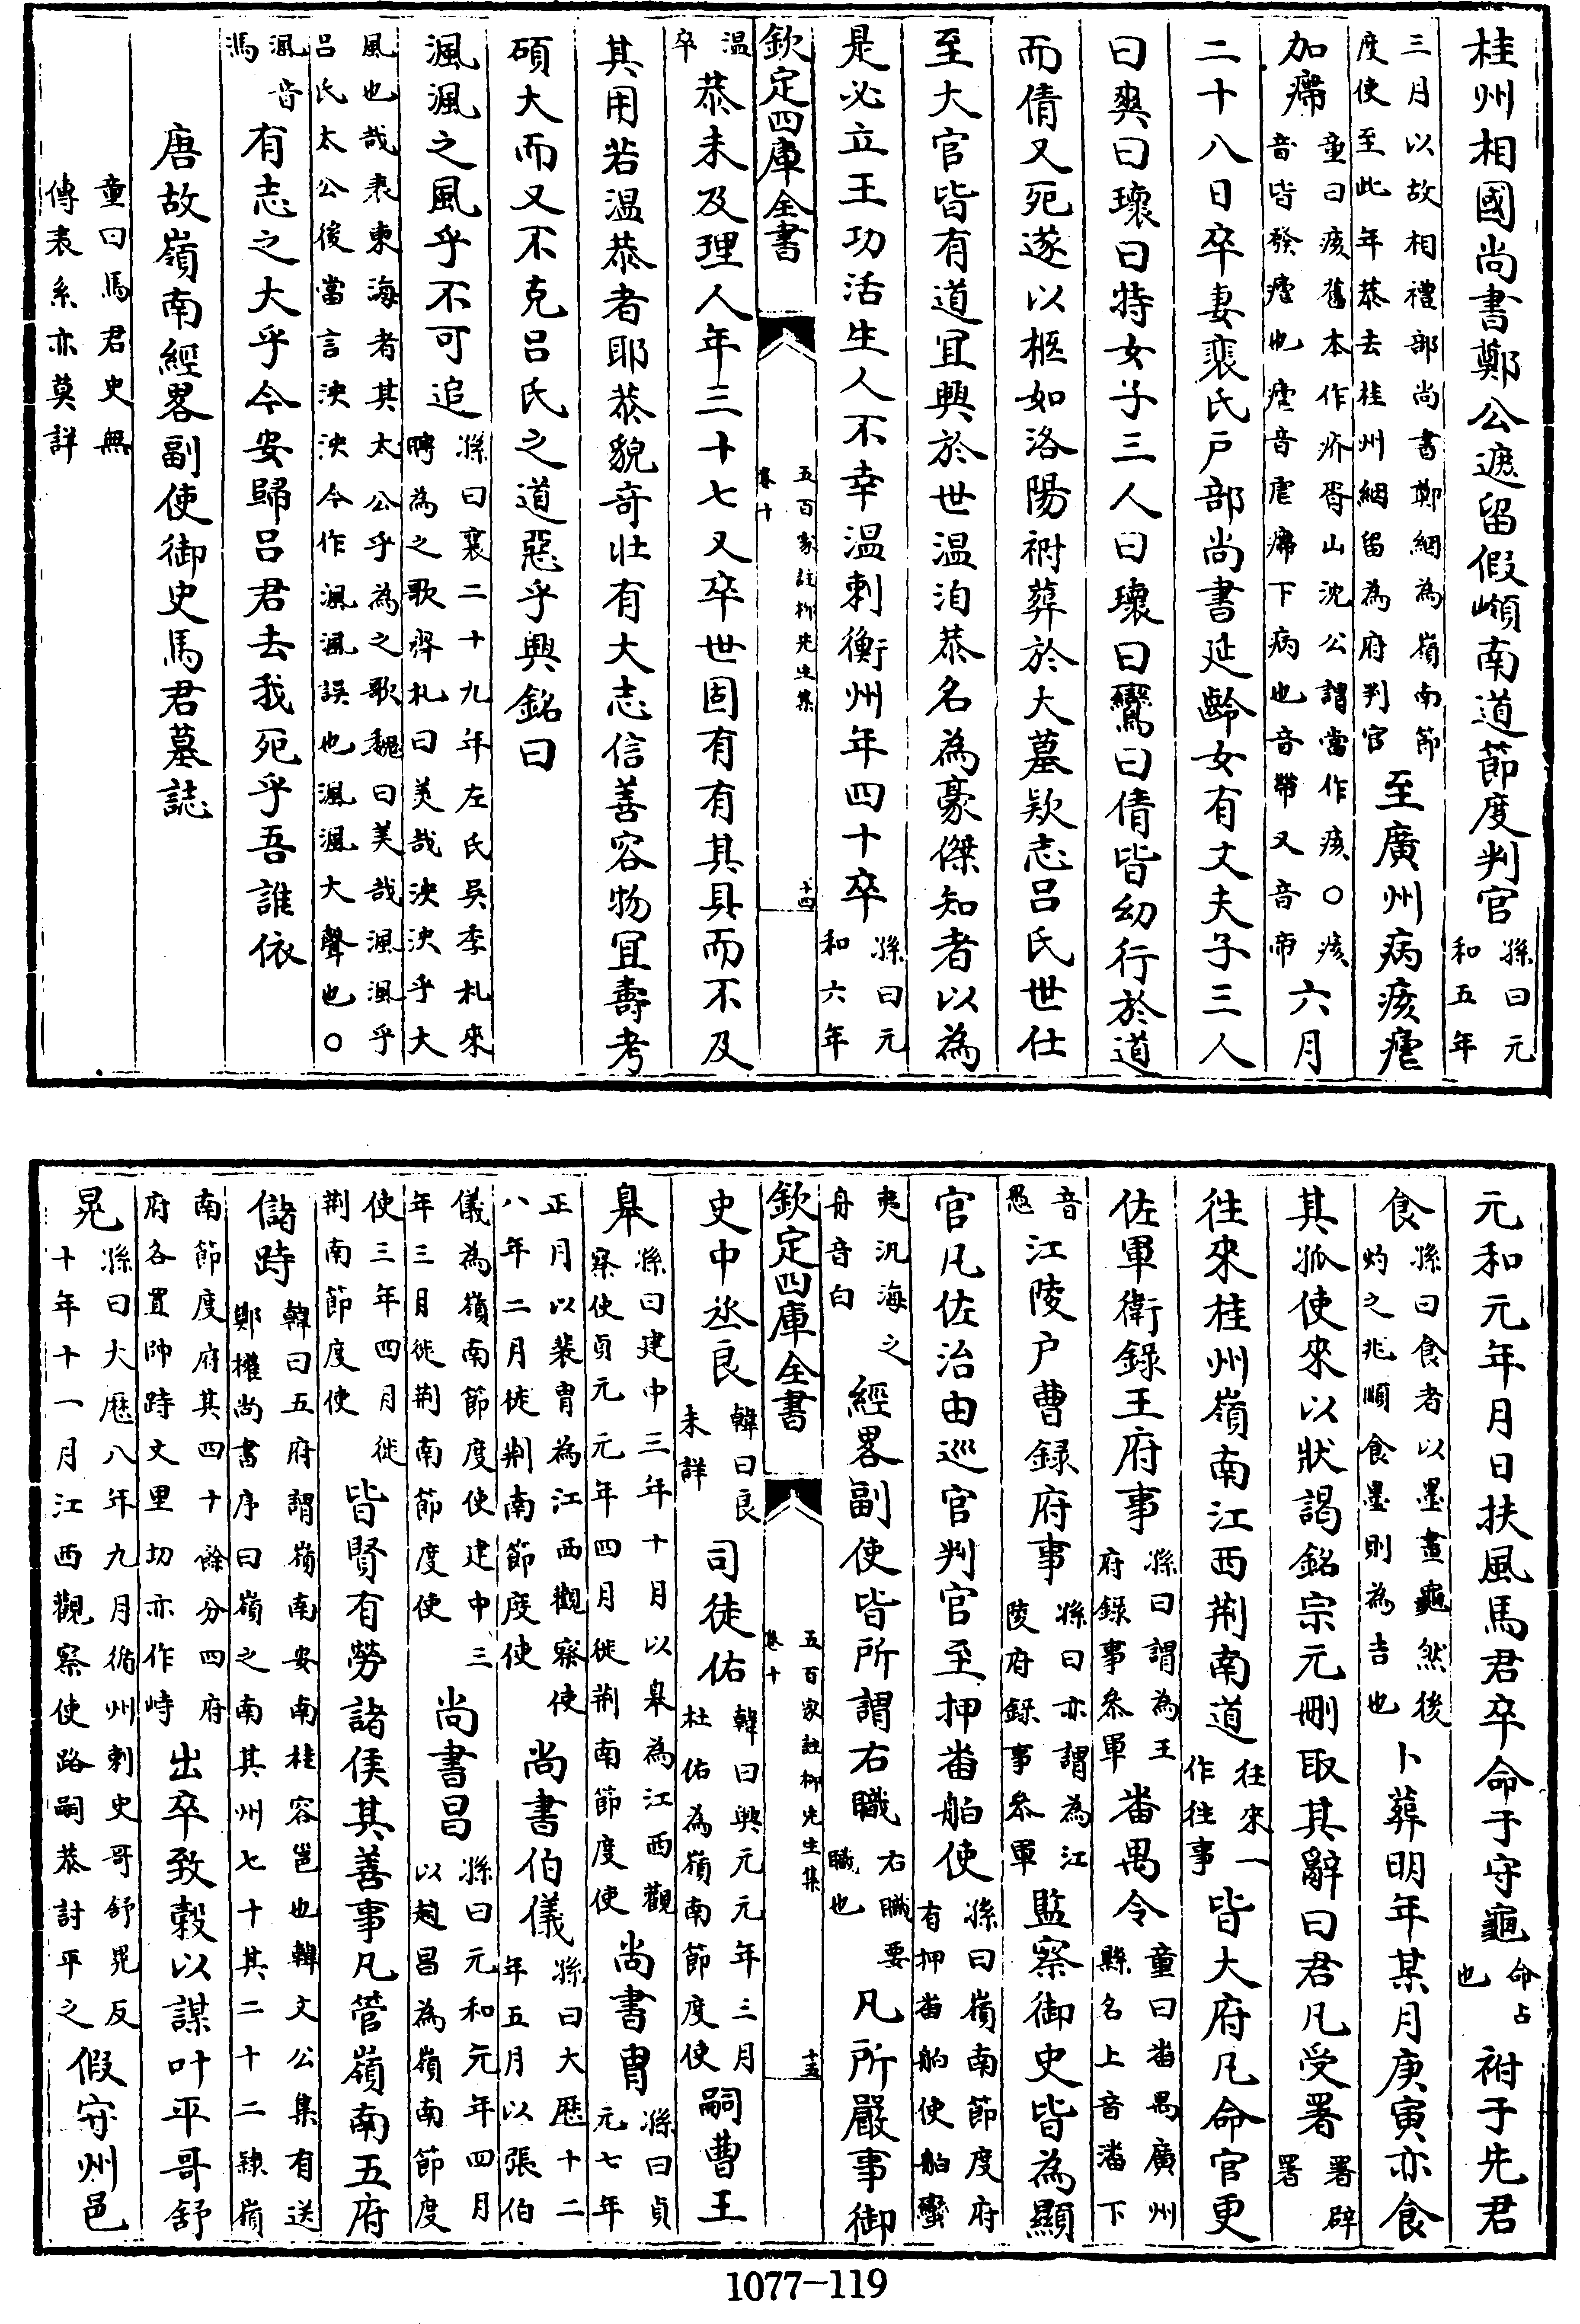 桂州相國尚書鄭公遮留假嶺南道節度判官孫曰元和五年
三月以故相禮部尚書鄭絪為嶺南節度使至此年恭去桂州絪留為府判官至廣州病痎瘧
加㿃童曰痎舊本作疥胥山沈公謂當作痎○痎音皆發瘧也瘧音虐㿃下病也音帶又音帝六月
二十八日卒妻裴氏戶部尚書延齡女有丈夫子三人
曰爽曰瓌曰特女子三人曰瓌曰鸞曰倩皆幼行於道
而倩又死遂以柩如洛陽祔葬於大墓欵志呂氏世仕
至大官皆有道宜興於世温洎恭名為豪傑知者以為
是必立王功活生人不幸温刺衡州年四十卒孫曰元和六年
欽定四庫全書
五百家註柳先生集
卷十
十四
温卒恭未及理人年三十七又卒世固有有其具而不及
其用若温恭者耶恭貌奇壯有大志信善容物宜壽考
碩大而又不克呂氏之道惡乎興銘曰
渢渢之風乎不可追孫曰襄二十九年左氏吳季札來聘為之歌齊札曰美哉泱泱乎大
風也哉表東海者其太公乎為之歌魏曰美哉渢渢乎呂氏太公後當言泱泱今作渢渢誤也渢渢大聲也○
渢音馮有志之大乎今安歸呂君去我死乎吾誰依
唐故嶺南經畧副使御史馬君墓誌
童曰馬君史無傳表系亦莫詳
元和元年月日扶風馬君卒命于守龜命占也祔于先君
食孫曰食者以墨畫龜然後灼之兆順食墨則為吉也卜葬明年某月庚寅亦食
其孤使來以狀謁銘宗元刪取其辭曰君凡受署署辟署
往來桂州嶺南江西荆南道往來一作往事皆大府凡命官更
佐軍衛錄王府事孫曰謂為王府錄事參軍番禺令童曰番禺廣州縣名上音潘下
音愚江陵戶曹録府事孫曰亦謂為江陵府録事參軍監察御史皆為顯
官凡佐治由巡官判官至押番舶使孫曰嶺南節度府有押番舶使舶蠻
夷汎海之舟音白經畧副使皆所謂右職右職要職也凡所嚴事御
欽定四庫全書
五百家註柳先生集
卷十
十五
史中丞良韓曰良未詳司徒佑韓曰興元元年三月杜佑為嶺南節度使嗣曹王
臯孫曰建中三年十月以臯為江西觀察使貞元元年四月徙荆南節度使尚書胄孫曰貞元七年
正月以裴胄為江西觀察使八年二月徙荆南節度使尚書伯儀孫曰大厯十二年五月以張伯
儀為嶺南節度使建中三年三月徙荆南節度使尚書昌孫曰元和元年四月以趙昌為嶺南節度
使三年四月徙荆南節度使皆賢有勞諸侯其善事凡管嶺南五府
儲跱韓曰五府謂嶺南安南桂容邕也韓文公集有送鄭權尚書序曰嶺之南其州七十其二十二隸嶺
南節度府其四十餘分四府府各置帥跱丈里切亦作峙出卒致榖以謀叶平哥舒
晃孫曰大厯八年九月循州刺史哥舒晃反十年十一月江西觀察使路嗣恭討平之假守州邑
1077-119